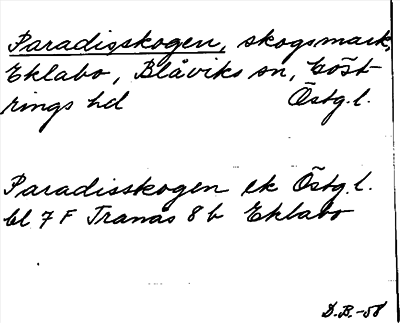 Paradisskogen, skogsmark,
Eklabo, Blåviks sn, Göst-
rings hd Östg.l.
Paradisskogen ek Östg.l.
bl. 7 F Tranås 8 b Eklabo
D.B.-58